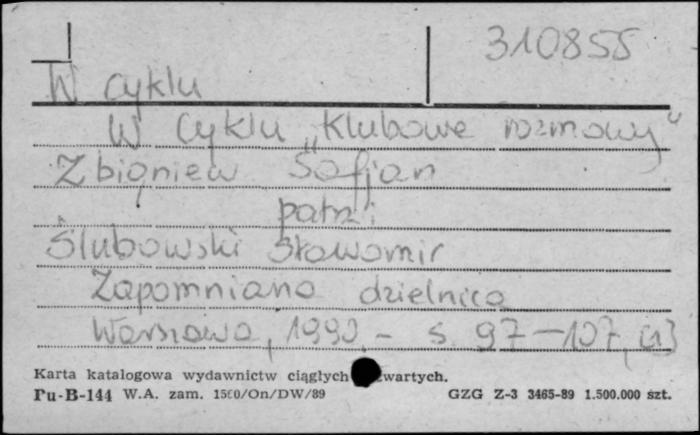 310855
W cyklu
W cyklu „Klubowe rozmowy"
Zbigniew Safjan
patrz:
Ślubowski Sławomir
Zapomniana dzielnica
Warszawa, 1990, - s. 97-107, [1]
Karta katalogowa wydawnictw ciągłych zwartych.
Pu-B-144 W.A. zam. 1500/On/DW/89 GZG Z-3 3465-89 1.500.000 szt.